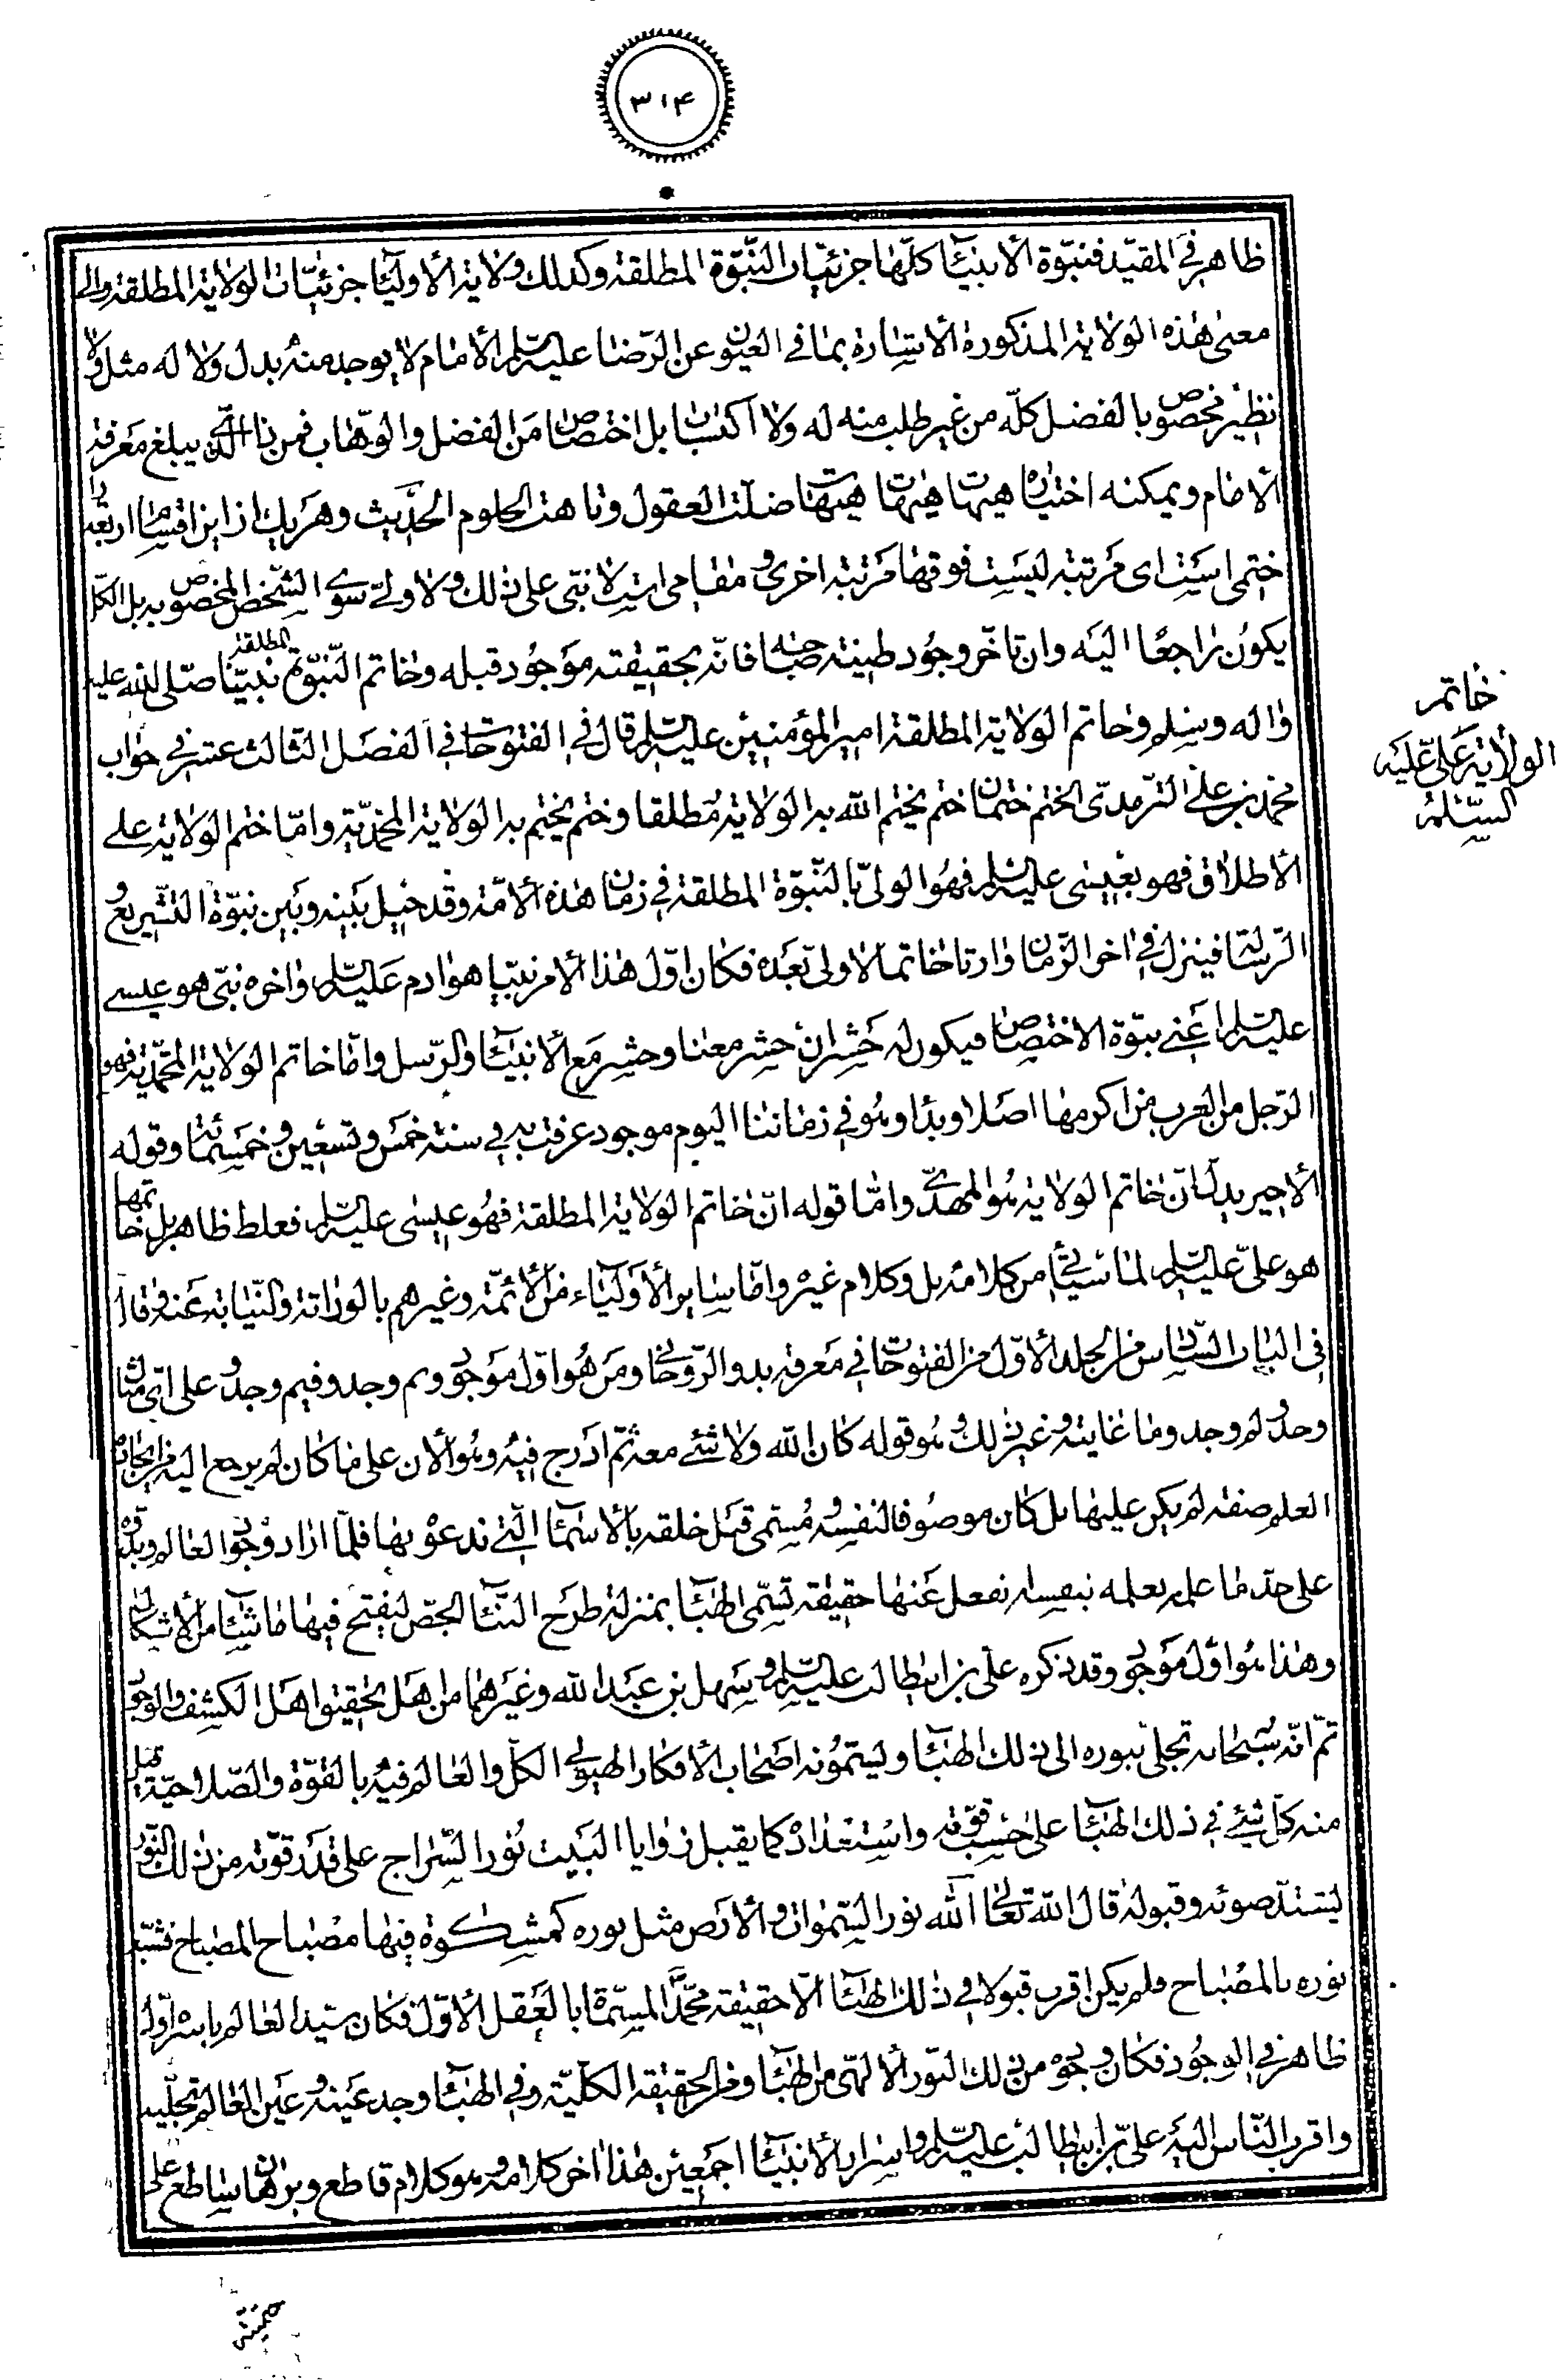 ۳۱۴
ظاهر في المقيد فنبوة الأنبياء كلها جزئيات النبوة المطلقة وكذلك ولاية الأولياء جزئيات الولاية المطلقة والى
معنى هذه الولاية المذكورة الاشارة بما في العيون عن الرضا عليه السلام الامام لا يوجد منه بدل ولا له مثل ولا
نظير مخصوص بالفضل كله من غير طلب منه له ولا اكتساب بل اختصاص من المفضل الوهاب فمن ذا الذي يبلغ معرفة
الامام ويمكنه اختياره هيهات هيهات هيهات ضلت العقول وتاهت الحلوم الحديث وهر يك از اين اقسام اربعه را
ختمى است اى مرتبة ليست فوقها مرتبة اخرى ومقامى است لا نبى على ذلك ولا ولى سوى الشخص المخصوص به بل الكل
يكون راجعا اليه وان تأخر وجود طينة صاحبه فانه بحقيقته موجود قبله وخاتم النبوة المطلقة نبينا صلى الله عليه
واله وسلم وخاتم الولاية المطلقة امير المؤمنين عليه السلام قال في الفتوحات في الفصل الثالث عشر في جواب
محمد بن علي الترمدى الختم ختمان ختم يختم الله به الولاية مطلقا وختم يختم به الولاية المحمدية واما ختم الولاية على
الاطلاق فهو بعيسى عليه السلام فهو الولى بالنبوة المطلقة في زمان هذه الأمة وقد حيل بينه وبين نبوة التشريع و
الرسالة فينزل في اخر الزمان وارثا خاتما لا ولى بعده فكان اول هذا الأمر نبيا هو ادم عليه السلام واخره نبى هو عيسى
عليه السلام اعني نبوة الاختصاص فيكون له حشران حشر معنا وحشر مع الأنبياء والرسل واما خاتم الولاية المحمدية فهو
الرجل من العرب من اكرمها اصلا وبدا وهو في زماننا اليوم موجود عرفت به في سنة خمس وتسعين وخمسمائة وقوله
الاخير يدل ان خاتم الولاية هو المهدى واما قوله ان خاتم الولاية المطلقة فهو عيسى عليه السلام فغلط ظاهر بل خاتمها
هو على عليه السلام لما سيأتي من كلامه بل وكلام غيره واما ساير الأولياء من الأئمة وغيرهم بالوراثة والنيابة عنه قال
في الباب السادس من الجلد الاول من الفتوحات في معرفة بدو الروحاني ومن هو اول موجود ومم وجد وفيم وجد وعلى اى مثال
وجد ولم وجد وما غايته وغير ذلك وهو قوله كان الله ولا شئ معه ثم ادرج فيه وهو الان على ما كان لم يرجع اليه من ايجاده
العلم صفة لم يكن عليها بل كان موصوفا لنفسه ومسمى قبل خلقه بالأسماء التي ندعو بها فلما اراد وجود العالم وبدؤه
على حد ما علم بعلمه بنفسه انفعل عنها حقيقة تسمى الهباء بمنزلة طرح البناء الجص ليفتح فيها ما شاء من الأشكال
وهذا هو اول موجود وقد ذكره على بن ابيطالب عليه السلام وسهل بن عبد الله وغيرهما من اهل التحقيق واهل الكشف والوجود
ثم انه سبحانه تجلى بنوره الى ذلك الهباء ويسمونه اصحاب الأفكار الهيولى الكل والعالم فيه بالقوة والصلاحية قبل
منه كل شئ في ذلك الهباء على حسب قوته واستعداده كما يقبل زوايا البيت نور السراج على قدر قوته من ذلك النور
يستد ضوئه وقبوله قال الله تعالى الله نور السموات والارض مثل نوره كمشكوة فيها مصباح المصباح فشبه
نوره بالمصباح فلم يكن اقرب قبولا في ذلك الهباء الا حقيقة محمد المسماة بالعقل الاول فكان سيد العالم باسره واول
ظاهر في الوجود فكان وجوده من ذلك النور الالهى من الهباء ومن الحقيقة الكلية وفي الهباء وجد عينه وعين العالم تجليه
واقرب الناس اليه على بن ابيطالب عليه السلام واسرار الأنبياء اجمعين هذا اخر كلامه وهو كلام قاطع وبرهان ساطع على
خاتم
الولاية علی علیه
السلام